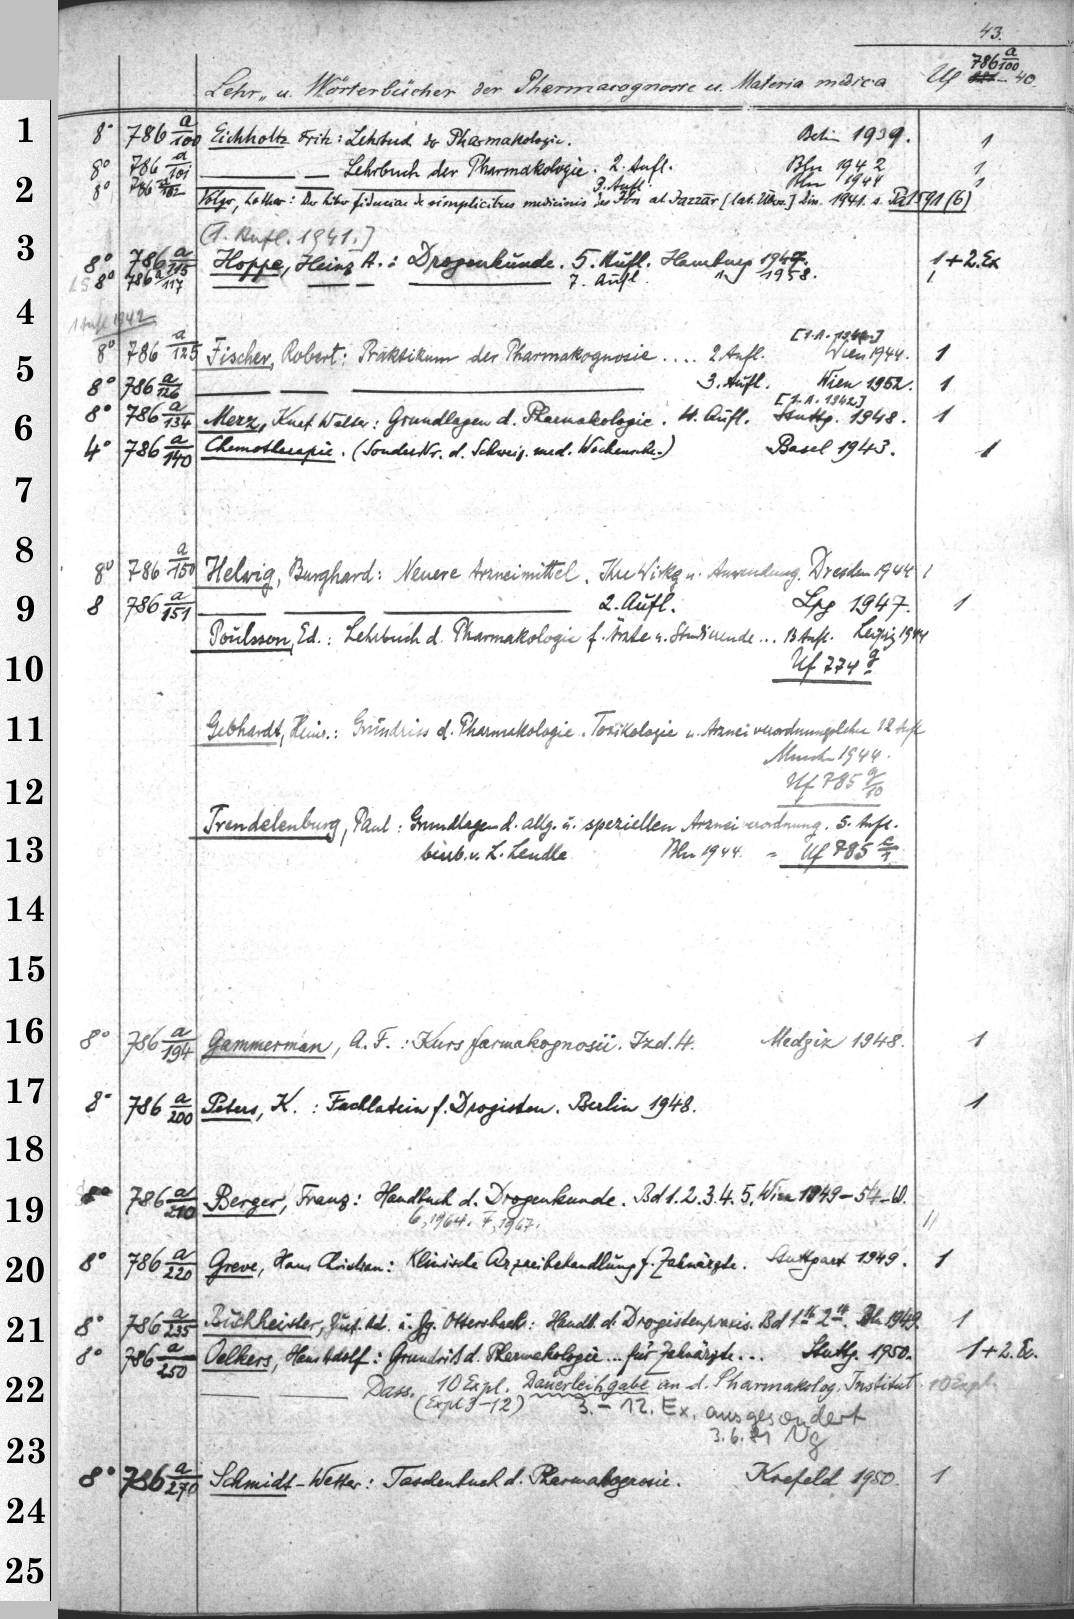 43.
Lehr- u. Wörterbücher der Pharmacognosie u. Materia medica Uf 786 a/100 - 40
1 8° 786 a/100 Eichholtz Fritz: Lehrbuch der Pharmakologie. Berlin 1939. 1
8° 786 a/101 — — Lehrbuch der Pharmakologie. 2. Aufl. Bln 1942 1
2 8° 786 a/102 3. Aufl. Bln 1944 1
Volger, Lothar: Der Liber fiduciae de simplicibus medicinis des Ibn al-Jazzar [lat. Übers.] Diss. 1941. s. Pa 1591 (6)
[1. Aufl. 1941.]
3 8° 786 a/115 Hoppe, Heinz A.: Drogenkunde. 5. Aufl. Hamburg 1947. 1 + 2. Ex
8° 786 a/117 — — — — 7. Aufl. " 1958. 1
4 1 Aufl 1942 [1. A. 1942]
8° 786 a/125 Fischer, Robert: Praktikum der Pharmakognosie .... 2 Aufl. Wien 1944. 1
5 8° 786 a/126 — — — 3. Aufl. Wien 1952. 1
[1. A. 1942]
6 8° 786 a/134 Merz, Kurt Walter: Grundlagen d. Pharmakologie. 4. Aufl. Stuttg. 1948. 1
4° 786 a/140 Chemotherapie. (SonderNr. d. Schweiz. med. Wochenschr.) Basel 1943. 1
7
8
8° 786 a/150 Helwig, Burghard: Neuere Arzneimittel. Ihre Wirkg u. Anwendung. Dresden 1944 1
9 8 786 a/151 — — — 2. Aufl. Lpg 1947. 1
Poulsson, Ed.: Lehrbuch d. Pharmakologie f. Ärzte u. Studierende ... 13 Aufl. Leipzig 1944
10 Uf 774 g
11 Gebhardt, Heinr.: Grundriss d. Pharmakologie. Toxikologie u. Arzneiverordnungslehre 12 Aufl
Münch 1944.
12 Uf 785 g/10
Trendelenburg, Paul: Grundlagen d. allg. u. speziellen Arzneiverordnung. 5. Aufl.
13 bearb. v. L. Lendle Bln 1944. = Uf 785 c/1
14
15
16 8° 786 a/194 Gammerman, A. F.: Kurs farmakognosii. Izd. 4. Medgiz 1948. 1
17 8° 786 a/200 Peters, K.: Fachlatein f. Drogisten. Berlin 1948. 1
18
19 8° 786 a/210 Berger, Franz: Handbuch d. Drogenkunde. Bd 1. 2. 3. 4. 5. Wien 1949-54-
6, 1964. 7, 1967.
20 8° 786 a/220 Greve, Hans Christian: Klinische Arzneibehandlung f. Zahnärzte. Stuttgart 1949. 1
21 8° 786 a/235 Buchheister, Gust. Ad. u. Gg. Ottersbach: Handb. d. Drogistenpraxis. Bd 1 2 Bln 1949. 1
8° 786 a/250 Oelkers, Hans Adolf: Grundriß d. Pharmakologie ... für Zahnärzte ... Stuttg. 1950. 1 + 2. Ex.
22 — — Dass. 10 Expl. Dauerleihgabe an d. Pharmakolog. Institut 10 Expl.
(Expl 3-12) 3. - 12. Ex. ausgesondert
23 3.6.81 Ng
8° 786 a/270 Schmidt-Wetter: Taschenbuch d. Pharmakognosie. Krefeld 1950. 1
24
25